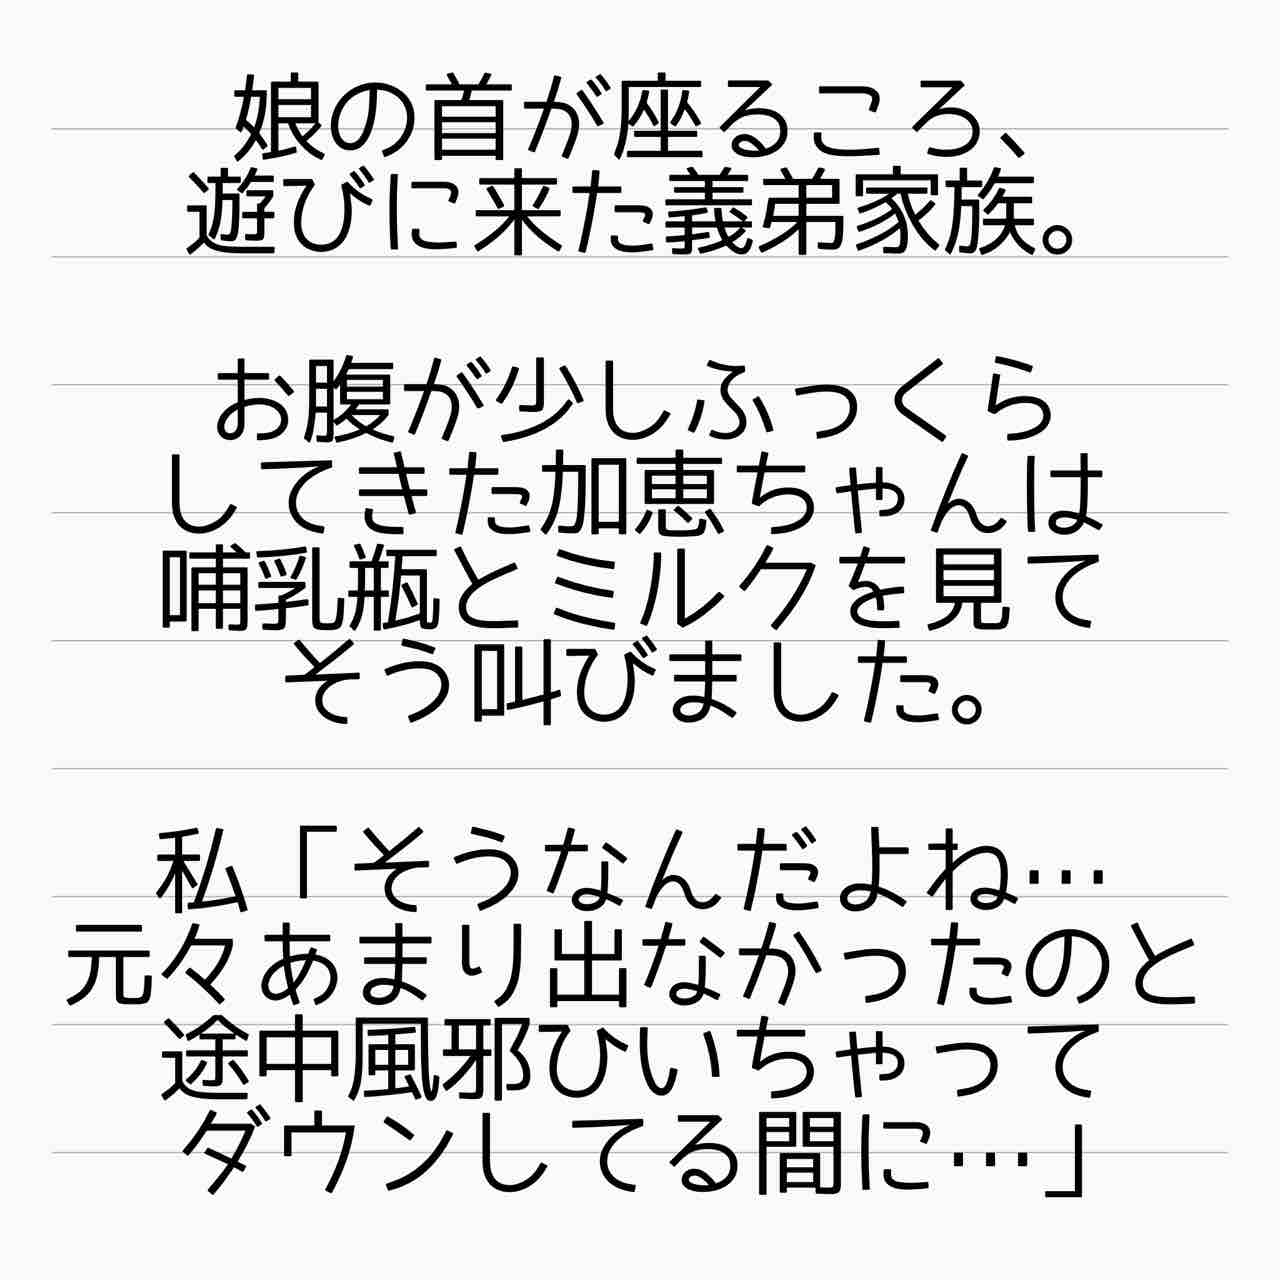 娘の首が座るころ、
遊びに来た義弟家族。
お腹が少しふっくら
してきた加恵ちゃんは
哺乳瓶とミルクを見て
そう叫びました。
私「そうなんだよね…
元々あまり出なかったのと
途中風邪ひいちゃって
ダウンしてる間に…」